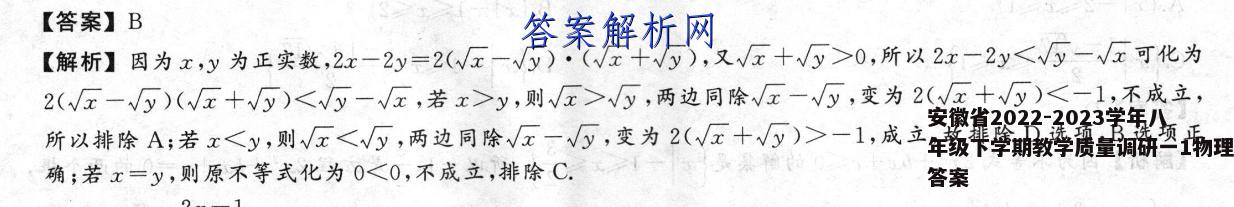 【答案】B
答案解析网
【解析】因为 x,y 为正实数,2x-2y=2(√x-√y)·(√x+√y),又√x+√y>0,所以 2x-2y<√y-√x可化为
2(√x-√y)(√x+√y)<√y-√x,若 x>y,则√x>√y,两边同除√x-√y,变为 2(√x+√y)<-1,不成立,
所以排除 A;若 x<y,则√x<√y,两边同除√x-√y,变为 2(√x+√y)>-1,成立,故排除 D 选项,B 选项正
确;若 x=y,则原不等式化为 0<0,不成立,排除 C.
安徽省2022-2023学年八
年级下学期教学质量调研一1物理
答案